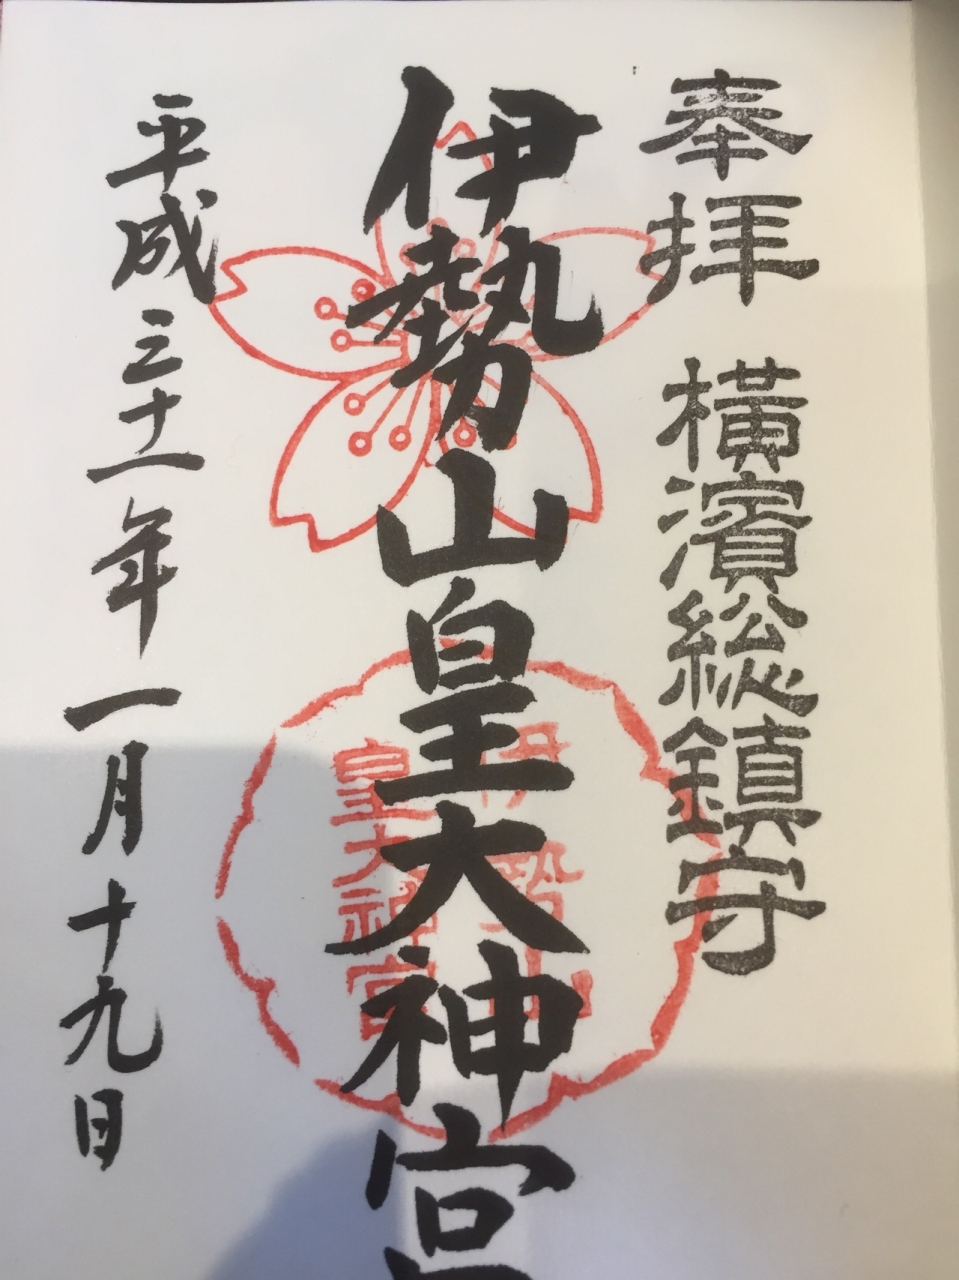 奉拝 横濱総鎮守
伊勢山皇大神宮
伊勢山
皇大神宮
平成三十一年一月十九日